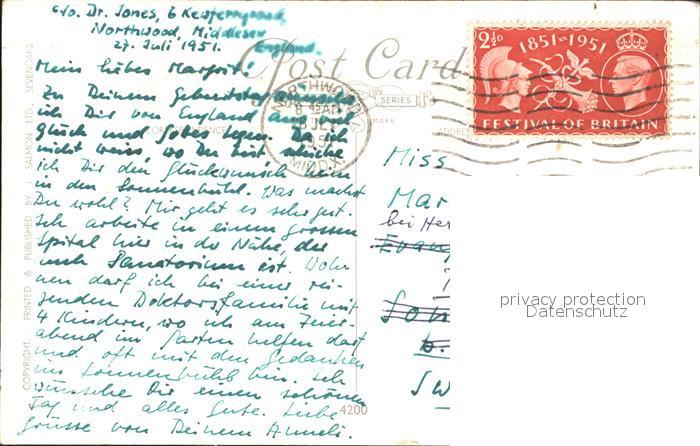 c/o. Dr. Jones, 6 Kewferrygrand,
Northwood, Middlesex
27. Juli 1951. England.
Mein liebes Margrit!
Zu Deinem Geburtstag wünsche
ich Dir von England aus viel
Glück und Gottes Segen. Da ich
nicht weiss, wo Du bist, schicke
ich Dir den Glückwunsch heim
in den Sonnenbühl. Was machst
Du wohl? Mir geht es sehr gut.
Ich arbeite in einem grossen
Spital hier in der Nähe, der
auch Sanatorium ist. Wohn-
nen darf ich bei einer rei-
zenden Doktorsfamilie mit
4 Kindern, wo ich am Feier-
abend im Garten helfen darf
und oft mit den Gedanken
im Sonnenbühl bin. Ich
wünsche Dir einen schönen
Tag und alles Gute. Liebe
Grüsse von Deinem Anneli.
Post Card
SERIES
MARK
ADDRESS
COPYRIGHT. PRINTED & PUBLISHED BY J. SALMON LTD., SEVENOAKS
4200
NORTHWOOD
MIDDX
2½D
1851-1951
FESTIVAL OF BRITAIN
Miss
Mar
bei Her
Evang
Son
b.
SW
privacy protection
Datenschutz